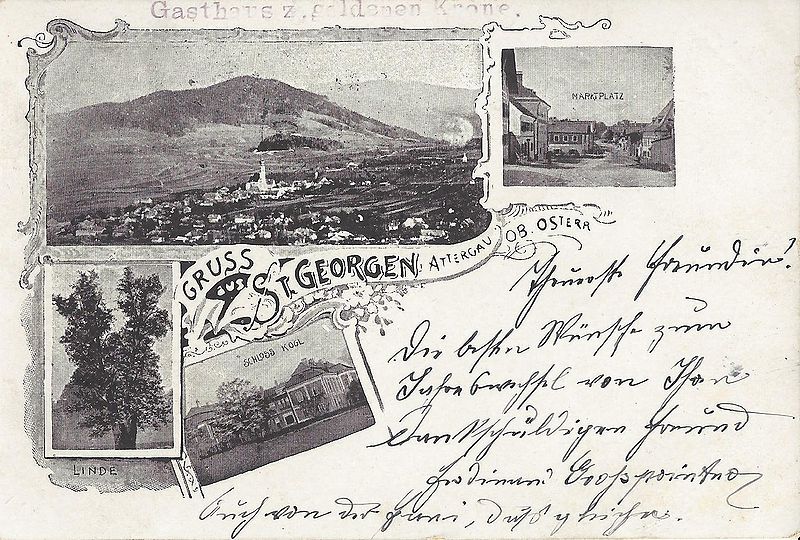 Gasthaus z. goldenen Krone.
MARKTPLATZ
GRUSS AUS ST. GEORGEN, ATTERGAU OB. OSTERR
SCHLOSS KOGL
LINDE
Theuerste Freundin!
Die besten Wünsche zum
Jahreswechsel von Ihren
dankschuldigen Freund
Ferdinand
Auch von der, dasgleiche.